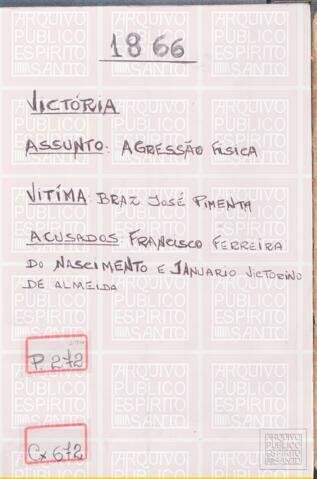 1866
VICTÓRIA
ASSUNTO: AGRESSÃO FISICA
VITÍMA: BRAZ JOSÉ PIMENTA
ACUSADOS: FRANCISCO FERREIRA
DO NASCIMENTO E JANUARIO VICTORINO
DE ALMEIDA
P. 272
Cx 672
ARQUIVO PÚBLICO ESPÍRITO SANTO